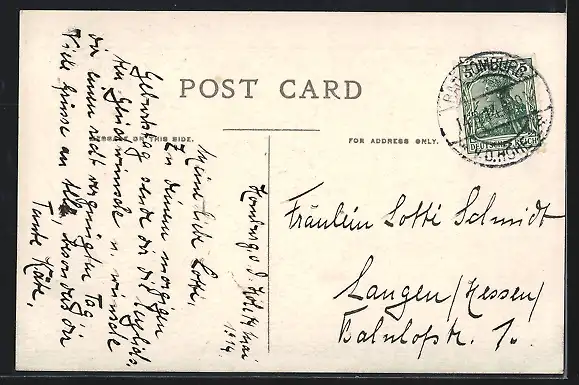 POST CARD
MESSAGE ON THIS SIDE.
FOR ADDRESS ONLY.
DEUTSCHES REICH
Homburg v d Höhe Mai
1914.
Meine liebe Lotti,
Zu deinem morgigen
Geburtstag sende dir die herzlichs.
ten Glückwünsche u. wünsche
dir einen recht vergnügten Tag.
Viele Grüsse an alle besonders an
Tante Käte.
Fräulein Lotti Schmidt
Langen /Hessen/
Bahnhofstr. 1.